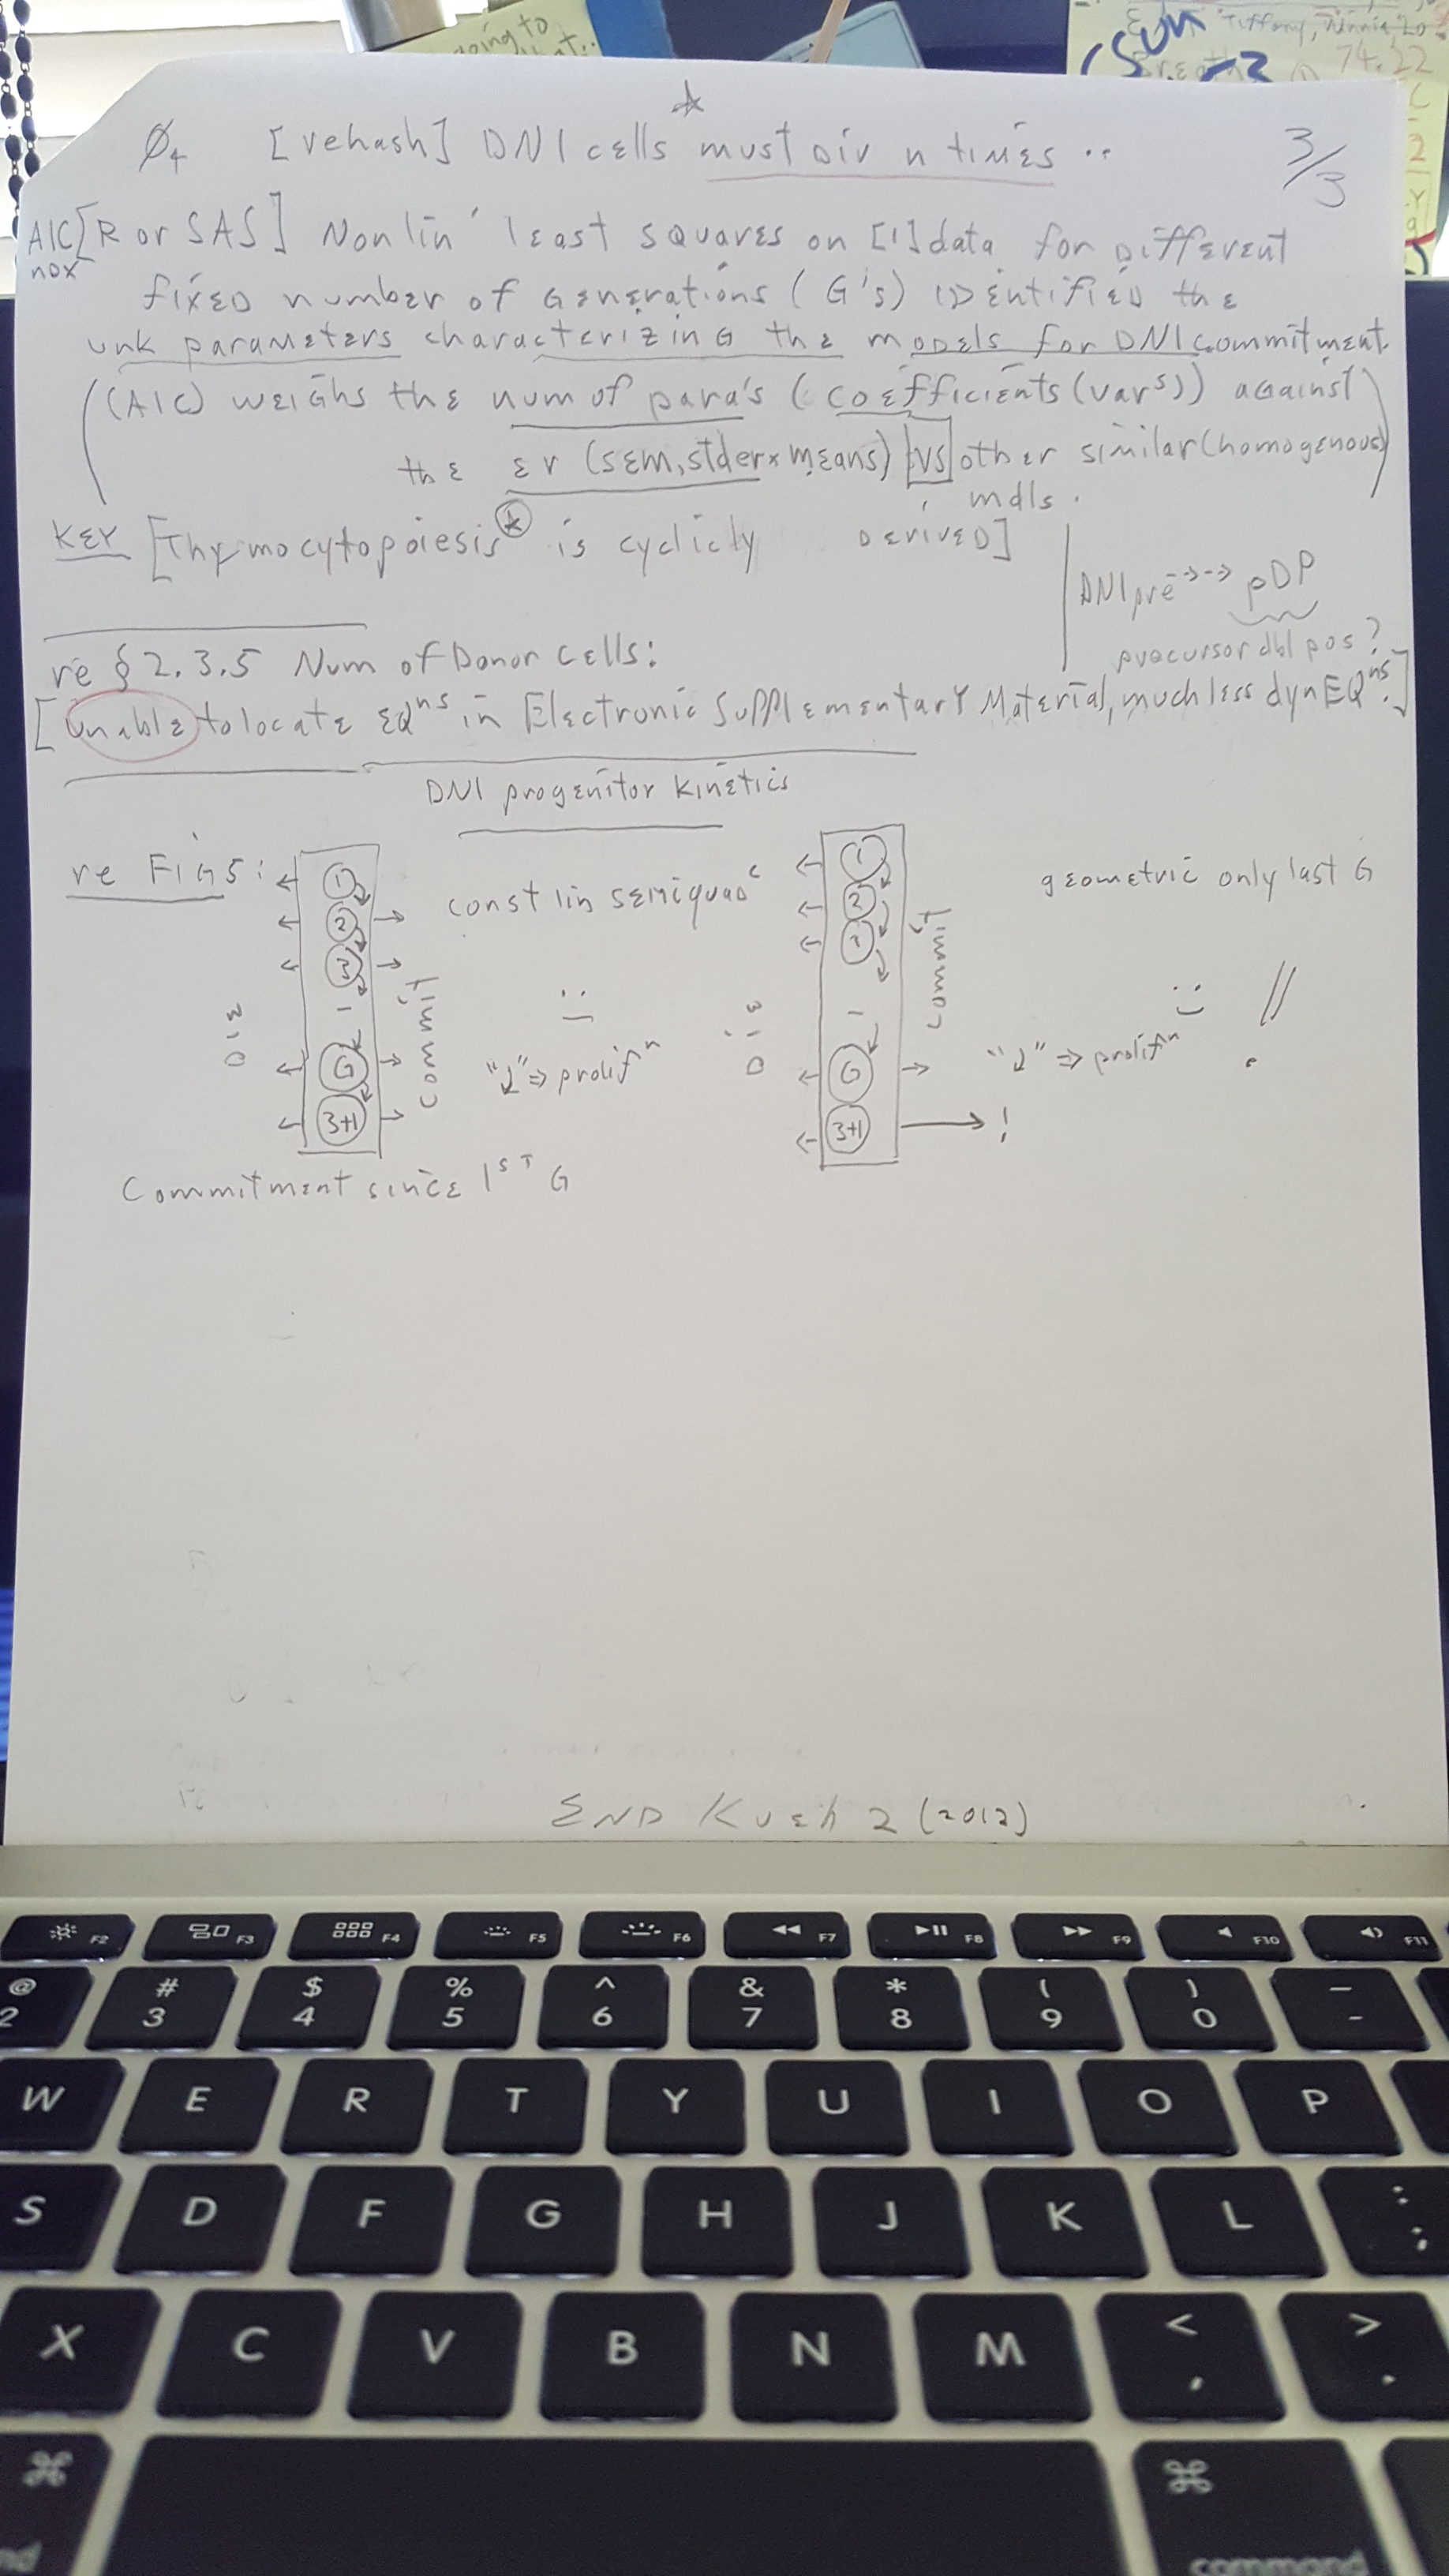 going to
Tiffany,
74.22
2
☆
∅4 [rehash] DN1 cells must Div n times ..
3/3
AIC [R or SAS] Nonlin' least squares on [1] data for Different
nox
fixed number of Generations (G's) IDentified the
unk parameters characterizing the models for DN1 commitment.
((AIC) weighs the num of para's (coefficients (varˢ)) against
the er (sem, stderx means) |vs| other similar (homogenous)
mdls.
KEY [Thymocytopoiesis* is cyclicly derived]
DN1pre --> --> pDP
precursor dbl pos?
re § 2.3.5 Num of Donor Cells:
[Unable to locate EQⁿˢ in Electronic Supplementary Material, much less dyn EQⁿˢ.]
DN1 progenitor Kinetics
re FIG 5:
1
2
3
G
3+1
Die
Commit
const lin semiquadᶜ
"↓" => prolifⁿ
1
2
3
G
3+1
Die
Commit
geometric only last G
"↓" => prolifⁿ
!
Commitment since 1ST G
END Kueh 2 (2012)
F2 F3 F4 F5 F6 F7 F8 F9 F10 F11
@ # $ % ^ & * ( ) —
2 3 4 5 6 7 8 9 0 -
W E R T Y U I O P
S D F G H J K L : ;
X C V B N M < , > .
⌘ ⌘
command